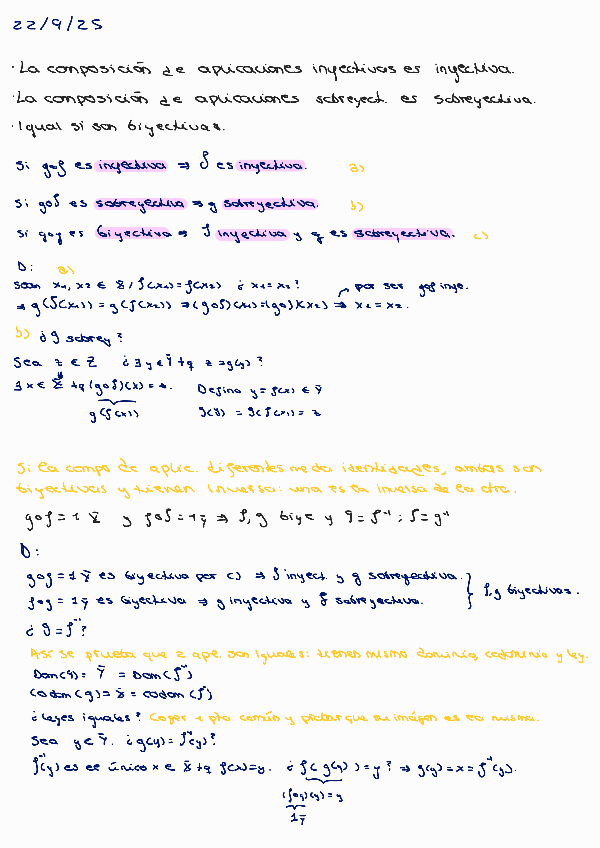 22/9/25
· La composición de aplicaciones inyectivas es inyectiva.
· La composición de aplicaciones sobreyect. es sobreyectiva.
· Igual si son biyectivas.
Si g∘f es inyectiva ⇒ f es inyectiva. a)
Si g∘f es sobreyectiva ⇒ g sobreyectiva. b)
Si g∘f es biyectiva ⇒ f inyectiva y g es sobreyectiva. c)
D: a)
Sean x₁, x₂ ∈ X / f(x₁) = f(x₂) ¿ x₁ = x₂? por ser g∘f inye.
⇒ g(f(x₁)) = g(f(x₂)) ⇒ (g∘f)(x₁) = (g∘f)(x₂) ⇒ x₁ = x₂.
b) ¿g sobrey?
Sea z ∈ Z ¿∃ y ∈ Y tq z = g(y)?
∃ x ∈ X tq (g∘f)(x) = z. Defino y = f(x) ∈ Y
g(f(x)) g(y) = g(f(x)) = z
Si la compo de aplic. diferentes me da identidades, ambas son
biyectivas y tienen inversa: una es la inversa de la otra.
g∘f = 1 X y f∘g = 1 Y ⇒ f, g biye y g = f⁻¹ ; f = g⁻¹
D:
g∘f = 1 X es biyectiva por c) ⇒ f inyect. y g sobreyectiva.
f∘g = 1 Y es biyectiva ⇒ g inyectiva y f sobreyectiva. f, g biyectivas.
¿ g = f⁻¹?
Así se prueba que 2 apl. son iguales: tienes mismo dominio, codominio y ley.
Dom(g) = Y = Dom(f⁻¹)
Codom(g) = X = codom(f⁻¹)
¿Leyes iguales? Coger 1 pto común y probar que su imagen es la misma.
Sea y ∈ Y. ¿g(y) = f⁻¹(y)?
f⁻¹(y) es el único x ∈ X tq f(x) = y. ¿ f( g(y) ) = y? ⇒ g(y) = x = f⁻¹(y).
(f∘g)(y) = y
1 Y